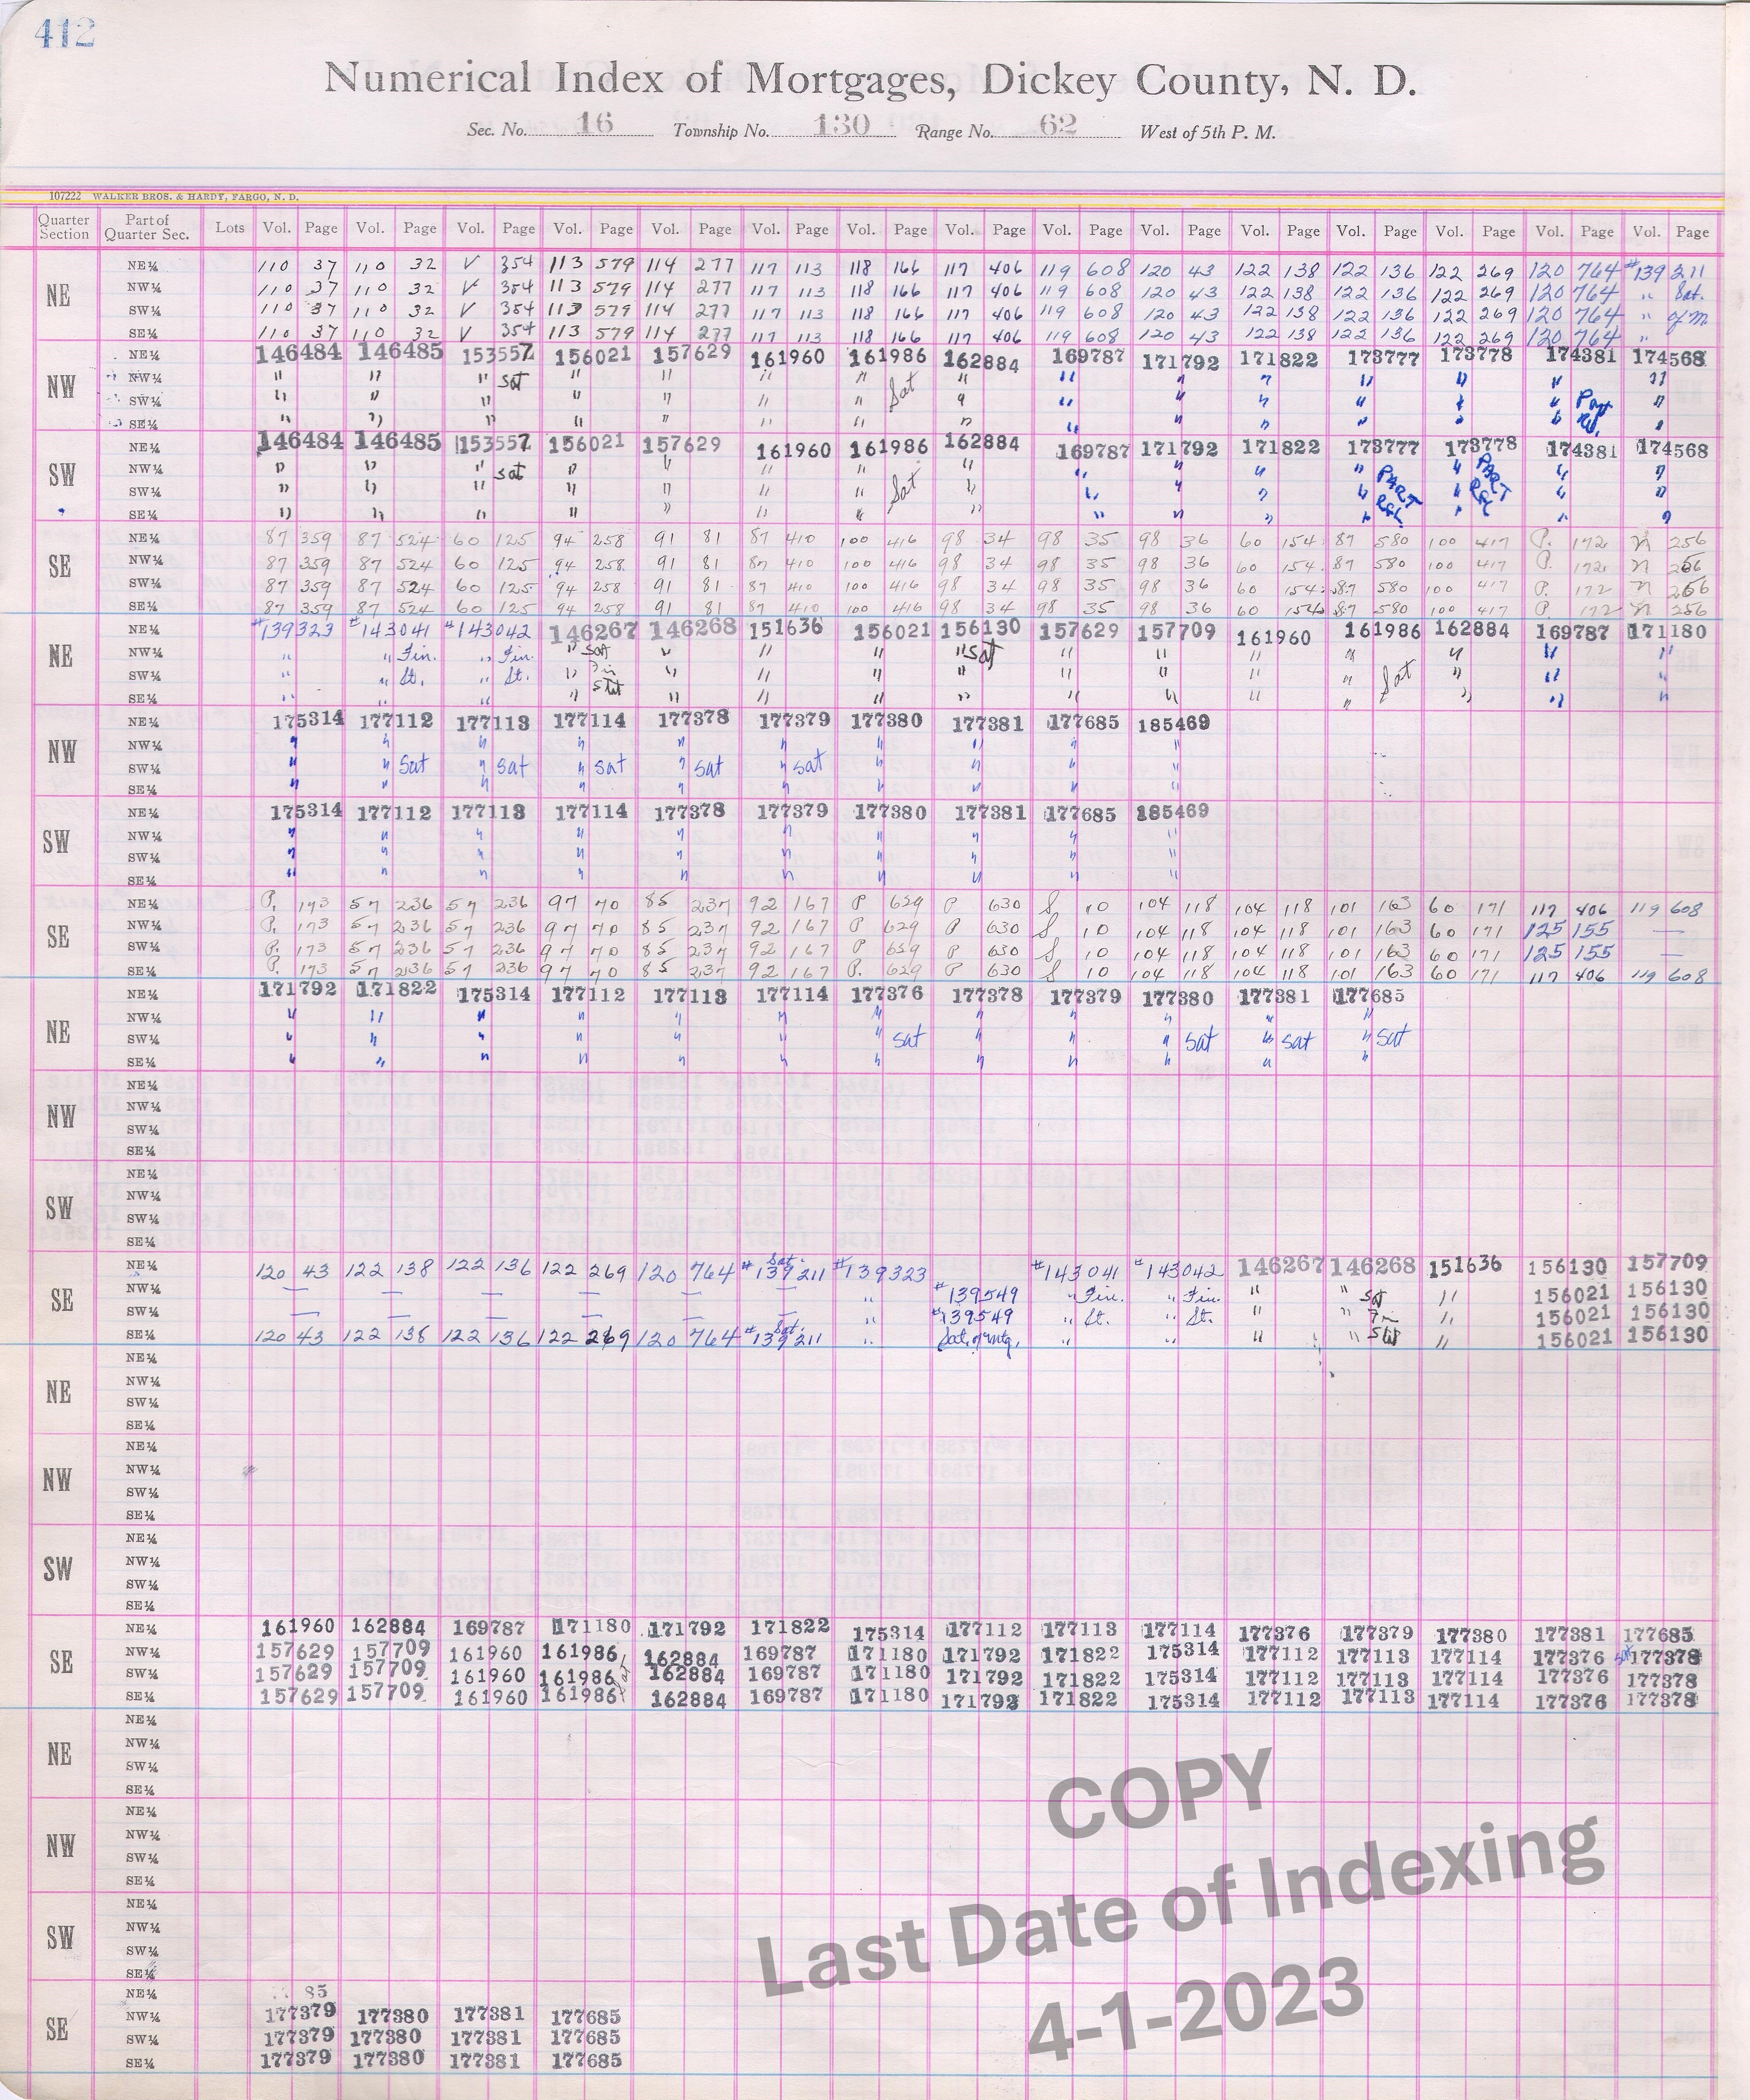 412
Numerical Index of Mortgages, Dickey County, N. D.
Sec. No. 16 Township No. 130 Range No. 62 West of 5th P. M.
107222 WALKER BROS. & HARDY, FARGO, N. D.
Quarter Section Part of Quarter Sec. Lots Vol. Page Vol. Page Vol. Page Vol. Page Vol. Page Vol. Page Vol. Page Vol. Page Vol. Page Vol. Page Vol. Page Vol. Page Vol. Page Vol. Page Vol. Page
NE
NE¼ 110 37 110 32 V 354 113 579 114 277 117 113 118 166 117 406 119 608 120 43 122 138 122 136 122 269 120 764 #139211
NW¼ 110 37 110 32 V 354 113 579 114 277 117 113 118 166 117 406 119 608 120 43 122 138 122 136 122 269 120 764 " Sat.
SW¼ 110 37 110 32 V 354 113 579 114 277 117 113 118 166 117 406 119 608 120 43 122 138 122 136 122 269 120 764 " of m
SE¼ 110 37 110 32 V 354 113 579 114 277 117 113 118 166 117 406 119 608 120 43 122 138 122 136 122 269 120 764 "
NW
NE¼ 146484 146485 153557 156021 157629 161960 161986 162884 169787 171792 171822 173777 173778 174381 174568
NW¼ " " " Sat " " " " Sat " " " " " " " "
SW¼ " " " " " " " " " " " " " " Part "
SE¼ " " " " " " " " " " " " " " Rel. "
SW
NE¼ 146484 146485 153557 156021 157629 161960 161986 162884 169787 171792 171822 173777 173778 174381 174568
NW¼ " " " Sat " " " " " " " " " " PART " "
SW¼ " " " " " " " Sat " " " " " PART " REL " "
SE¼ " " " " " " " " " " " " REL " " "
SE
NE¼ 87 359 87 524 60 125 94 258 91 81 87 410 100 416 98 34 98 35 98 36 60 154 87 580 100 417 P. 172 N 256
NW¼ 87 359 87 524 60 125 94 258 91 81 87 410 100 416 98 34 98 35 98 36 60 154 87 580 100 417 P. 172 N 256
SW¼ 87 359 87 524 60 125 94 258 91 81 87 410 100 416 98 34 98 35 98 36 60 154 87 580 100 417 P. 172 N 256
SE¼ 87 359 87 524 60 125 94 258 91 81 87 410 100 416 98 34 98 35 98 36 60 154 87 580 100 417 P 172 N 256
NE
NE¼ #139323 #143041 #143042 146267 146268 151636 156021 156130 157629 157709 161960 161986 162884 169787 171180
NW¼ " " Fin. " Fin. " Sat " " " " Sat " " " " " " "
SW¼ " " St. " St. " Fin " " " " " " " " Sat " " "
SE¼ " " " " Stat " " " " " " " " " " "
NW
NE¼ 175314 177112 177113 177114 177378 177379 177380 177381 177685 185469
NW¼ " " " " " " " " " "
SW¼ " " Sat " Sat " Sat " Sat " Sat " " " "
SE¼ " " " " " " " " " "
SW
NE¼ 175314 177112 177113 177114 177378 177379 177380 177381 177685 185469
NW¼ " " " " " " " " " "
SW¼ " " " " " " " " " "
SE¼ " " " " " " " " " "
SE
NE¼ P. 173 57 236 57 236 97 70 85 237 92 167 P 629 P 630 S 10 104 118 104 118 101 163 60 171 117 406 119 608
NW¼ P. 173 57 236 57 236 97 70 85 237 92 167 P 629 P 630 S 10 104 118 104 118 101 163 60 171 125 155 —
SW¼ P. 173 57 236 57 236 97 70 85 237 92 167 P 659 P 630 S 10 104 118 104 118 101 163 60 171 125 155 —
SE¼ P. 173 57 236 57 236 97 70 85 237 92 167 P. 629 P 630 S 10 104 118 104 118 101 163 60 171 117 406 119 608
NE
NE¼ 171792 171822 175314 177112 177113 177114 177376 177378 177379 177380 177381 177685
NW¼ " " " " " " " " " " " "
SW¼ " " " " " " " Sat " " " Sat " Sat " Sat
SE¼ " " " " " " " " " " " "
NW
NE¼
NW¼
SW¼
SE¼
SW
NE¼
NW¼
SW¼
SE¼
SE
NE¼ 120 43 122 138 122 136 122 269 120 764 Sat. #139211 #139323 #143041 #143042 146267 146268 151636 156130 157709
NW¼ — — — — — — " #139549 " Fin. " Fin. " " Sat " 156021 156130
SW¼ — — — — — — " #139549 " St. " St. " " Fin " 156021 156130
SE¼ 120 43 122 138 122 136 122 269 120 764 Sat. #139211 " Sat. of mtg. " " " " Stat " 156021 156130
NE
NE¼
NW¼
SW¼
SE¼
NW
NE¼
NW¼
SW¼
SE¼
SW
NE¼
NW¼
SW¼
SE¼
SE
NE¼ 161960 162884 169787 171180 171792 171822 175314 177112 177113 177114 177376 177379 177380 177381 177685
NW¼ 157629 157709 161960 161986 162884 169787 171180 171792 171822 175314 177112 177113 177114 177376 Sat 177378
SW¼ 157629 157709 161960 161986 Sat 162884 169787 171180 171792 171822 175314 177112 177113 177114 177376 177378
SE¼ 157629 157709 161960 161986 162884 169787 171180 171792 171822 175314 177112 177113 177114 177376 177378
NE
NE¼
NW¼
SW¼
SE¼
NW
NE¼
NW¼
SW¼
SE¼
SW
NE¼
NW¼
SW¼
SE¼
SE
NE¼ 85
NW¼ 177379 177380 177381 177685
SW¼ 177379 177380 177381 177685
SE¼ 177379 177380 177381 177685
COPY
Last Date of Indexing
4-1-2023